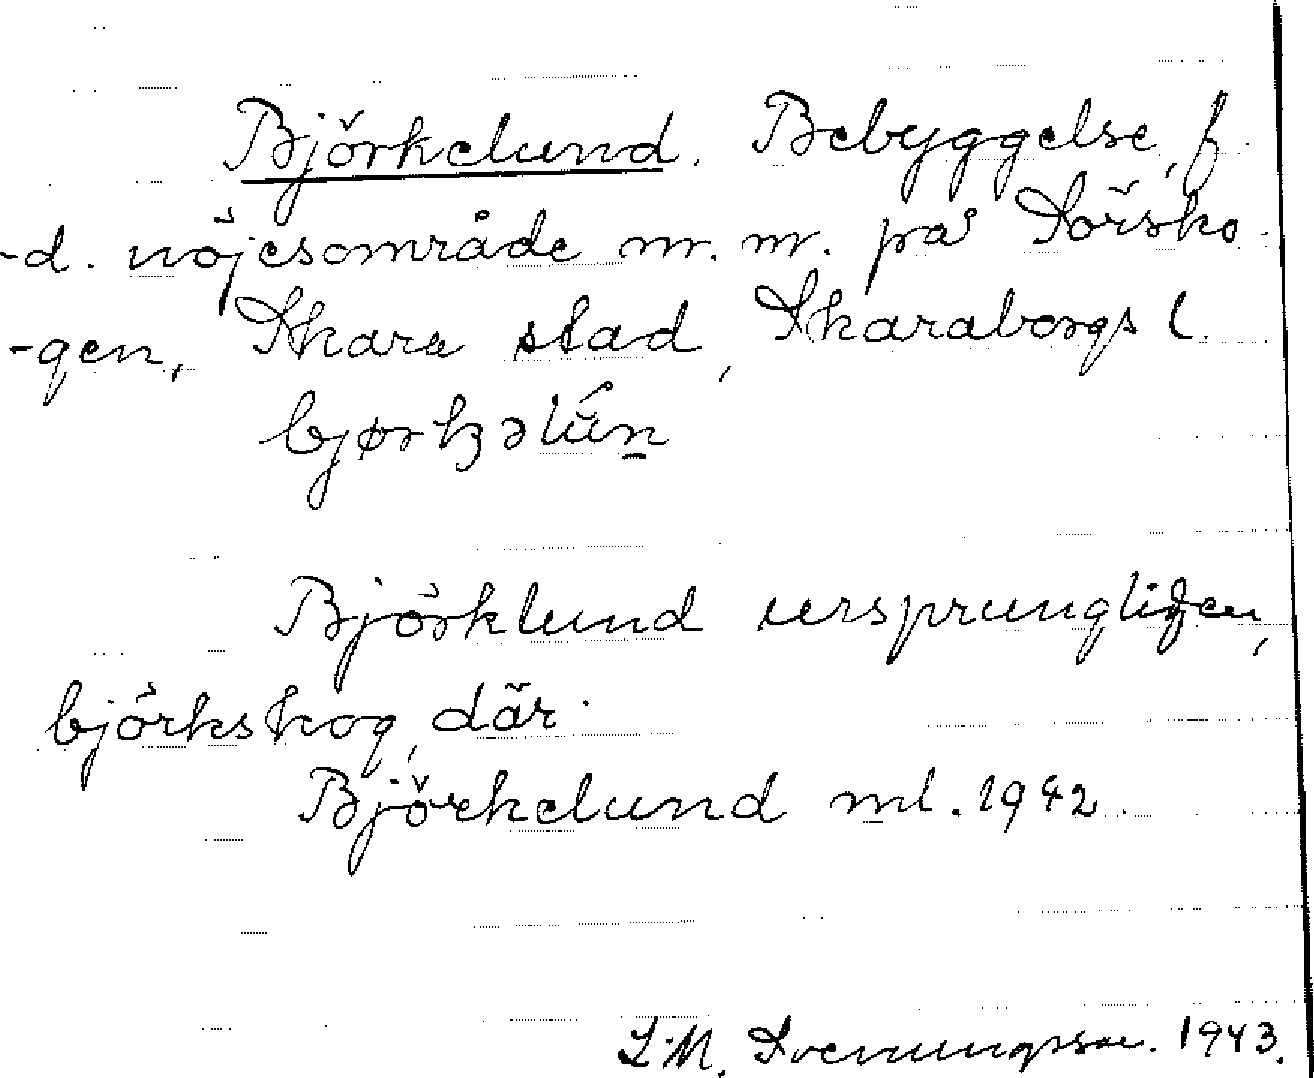 Björkelund. Bebyggelse, f
-d. nöjesområde m. m. på Sörsko
-gen, Skara stad, Skaraborgs l.
bjørkəlún
Björklund ursprungligen,
björkskog, där.
Björkelund ml. 1942.
S.M. Svenungsson. 1943.